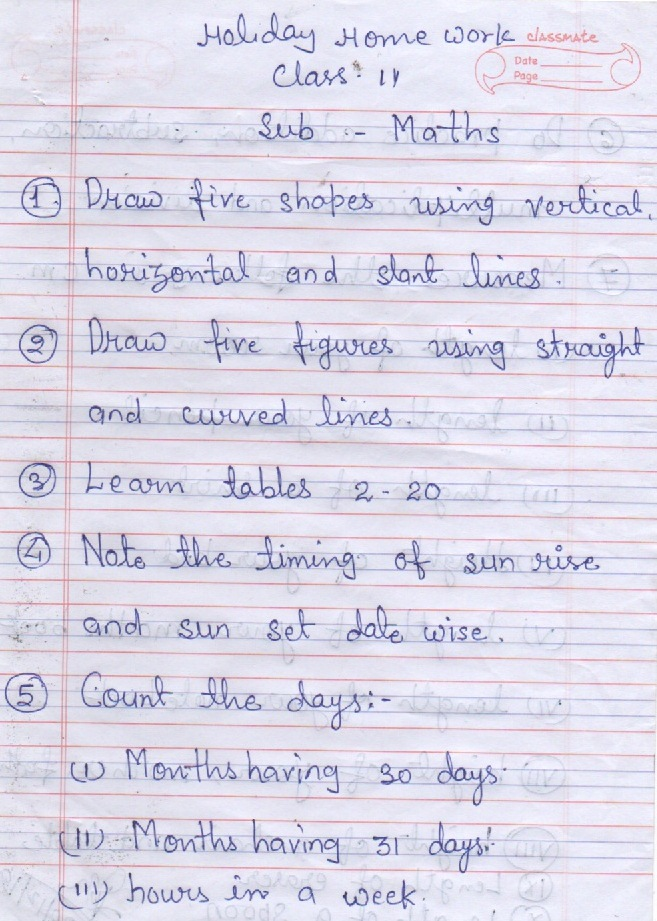 Holiday Home Work
classmate
Date
Page
Class: II
Sub :- Maths
① Draw five shapes using vertical,
horizontal and slant lines.
② Draw five figures using straight
and curved lines.
③ Learn tables 2-20
④ Note the timing of sun rise
and sun set date wise.
⑤ Count the days:-
(i) Months having 30 days.
(ii) Months having 31 days.
(iii) hours in a week.